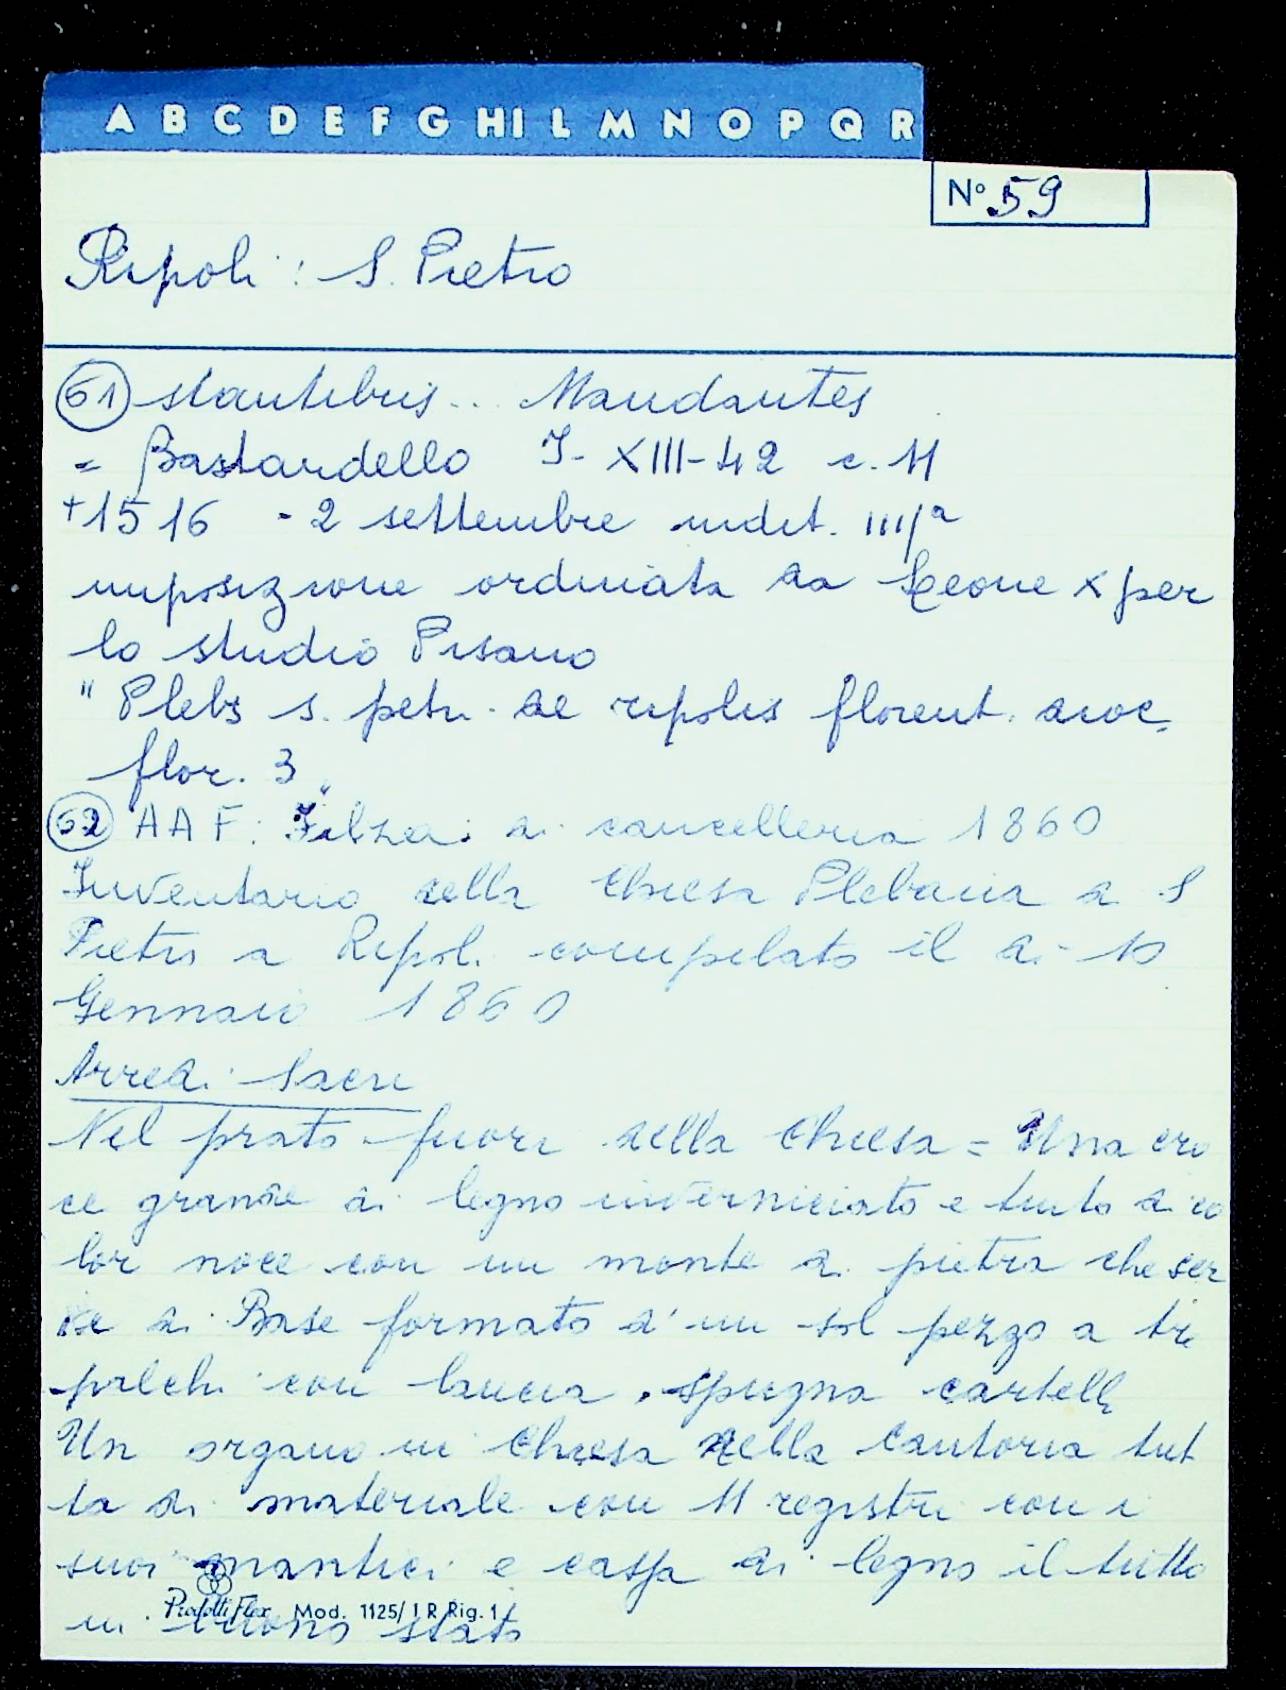 A B C D E F G H I L M N O P Q R
N° 59
Ripoli: S. Pietro
61 stantibus... Mandantes
= Bastardello I-XIII-42 c. 11
+1516 - 2 settembre indit. IIIIa
imposizione ordinata da Leone X per
lo studio Pisano
" Plebs s. petri de ripolis florent. dioc.
flor. 3 "
62 AAF: Filza di cancelleria 1860
Inventario della Chiesa Plebana a S
Pietro a Ripoli compilato il di 10
Gennaio 1860
Arredi Sacri
Nel prato fuori della Chiesa = Una cro
ce grande di legno inverniciato e tinto di co
lor noce con un monte di pietra che ser
ve di Base formato d'un sol pezzo a tre
palchi con lancia, spugna cartello
Un organo in Chiesa nella Cantoria tut
ta di materiale con 11 registri con i
suoi mantici e cassa di legno il tutto
in buono stato
Prodotti Flex Mod. 1125/1 R Rig. 1